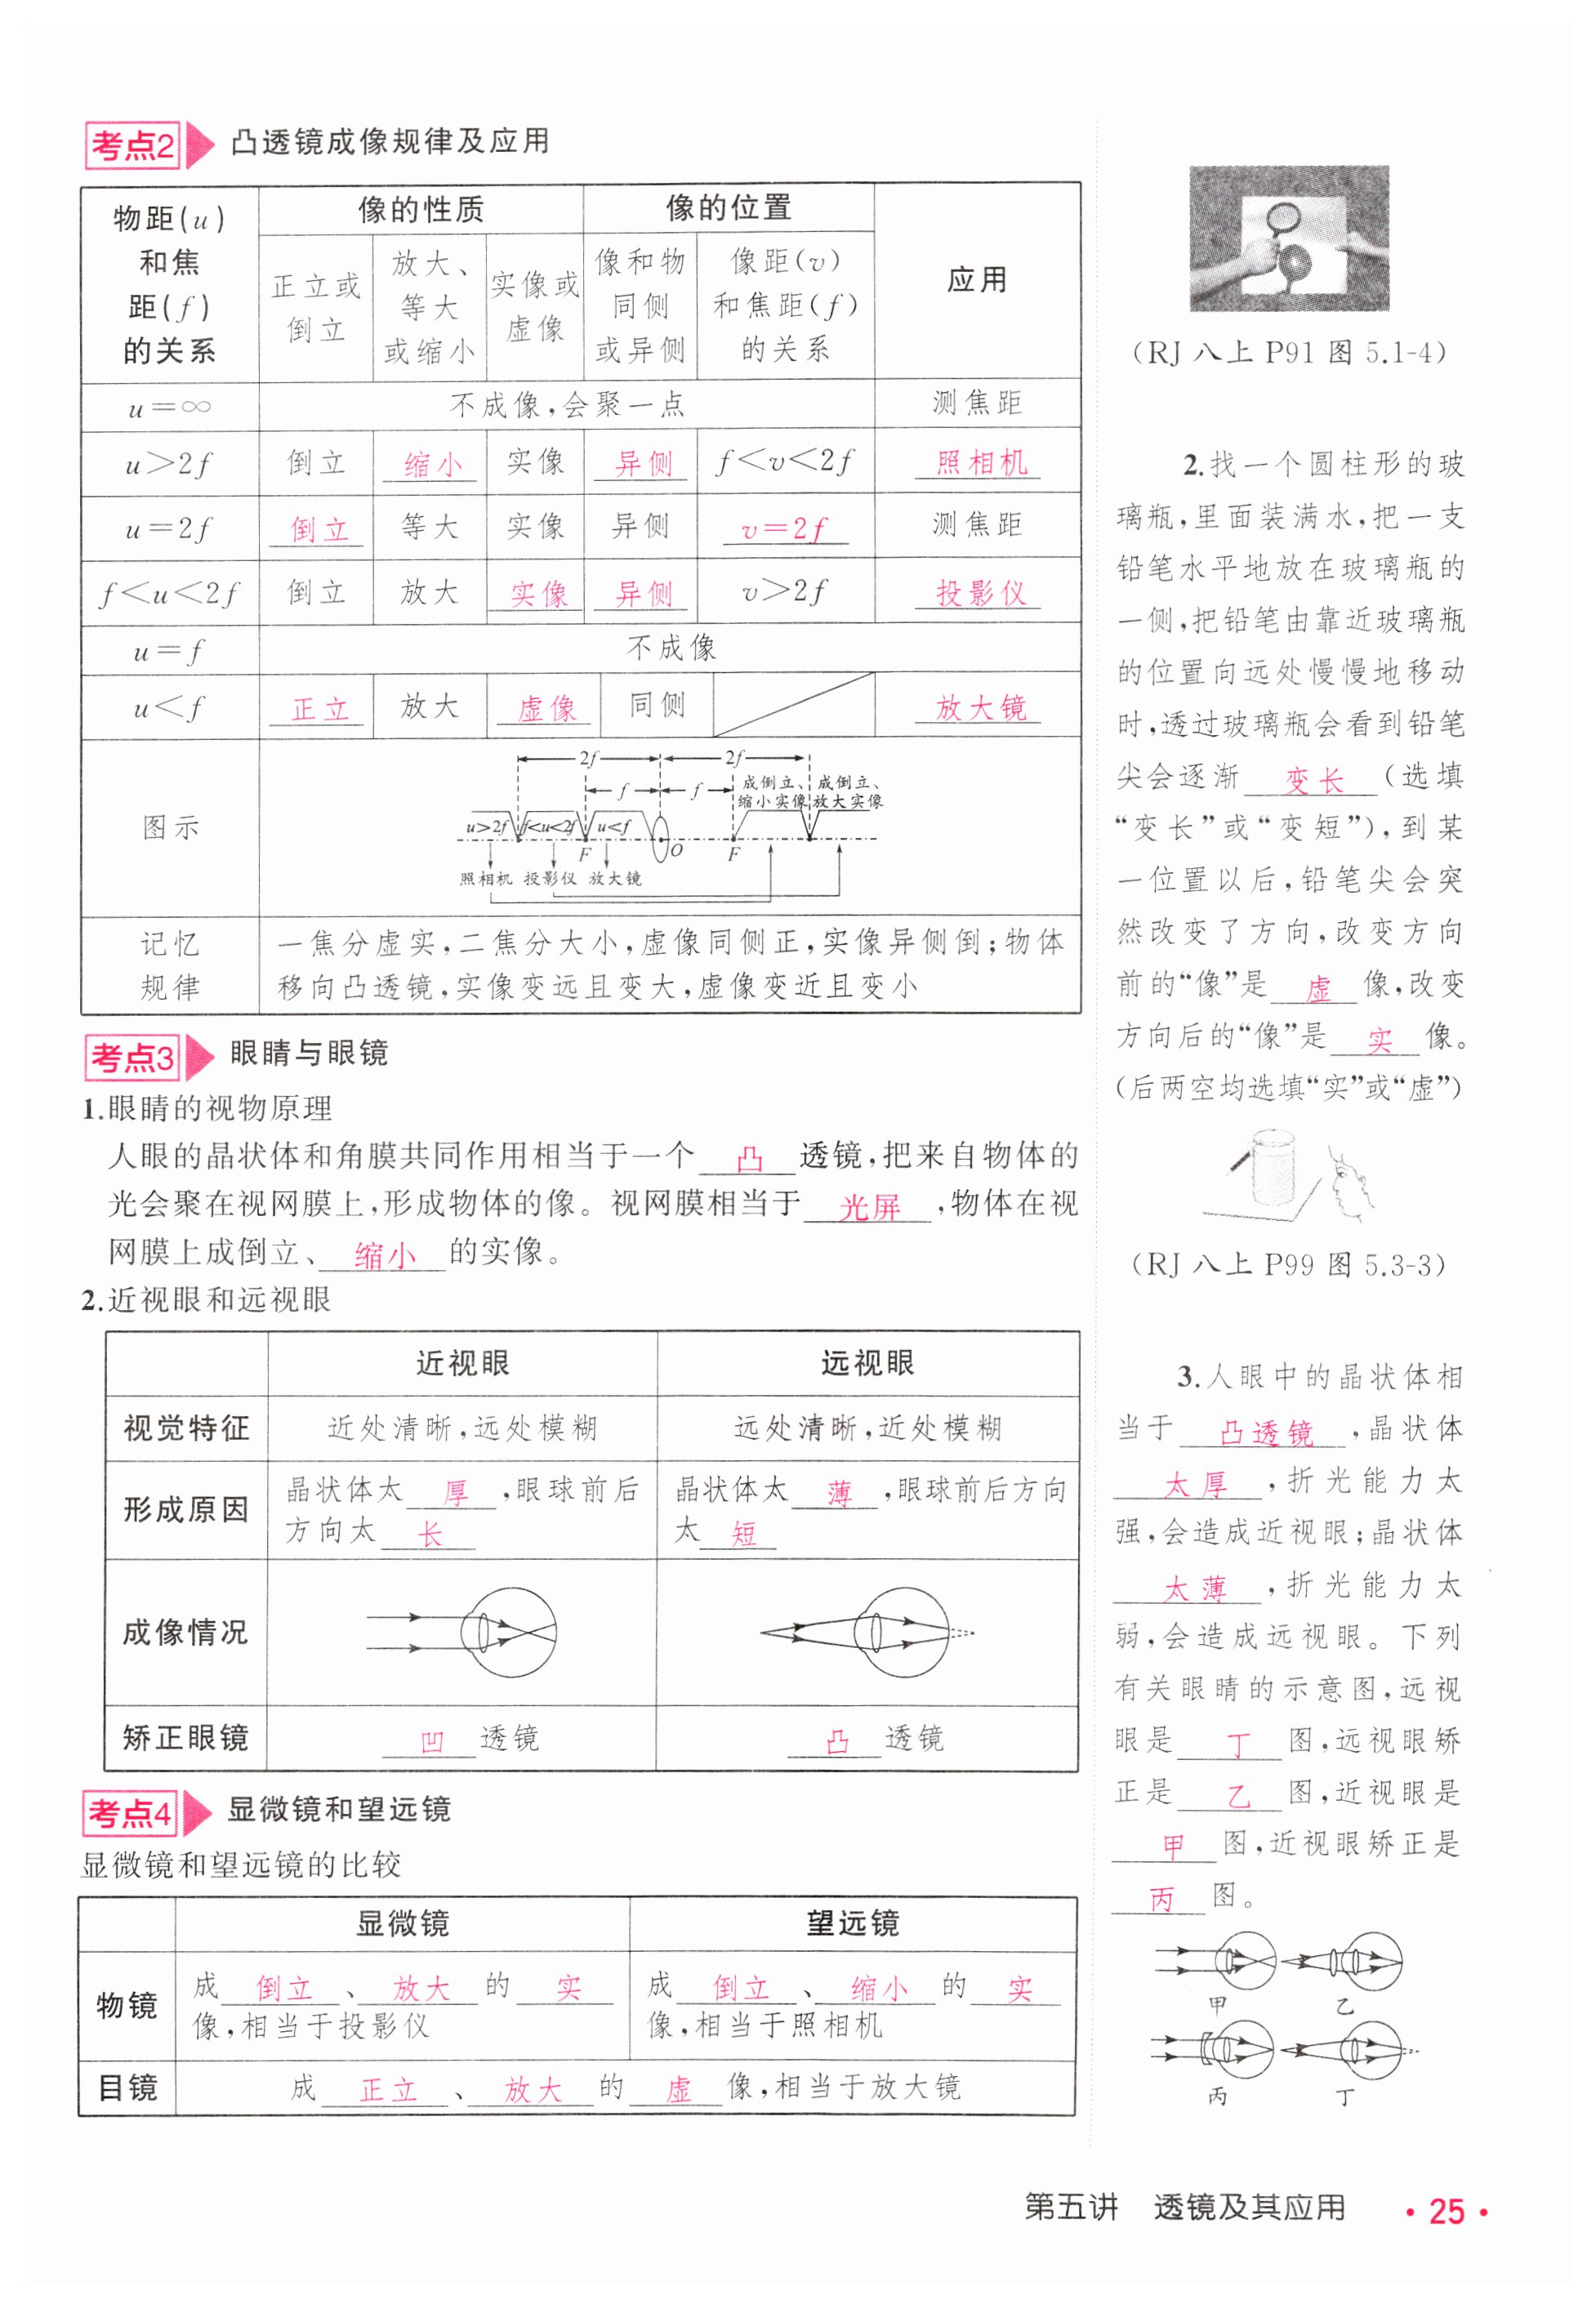 考点2 凸透镜成像规律及应用
物距(u)和焦距(f)的关系 像的性质 像的位置 应用
正立或倒立 放大、等大或缩小 实像或虚像 像和物同侧或异侧 像距(v)和焦距(f)的关系
u=∞ 不成像,会聚一点 测焦距
u>2f 倒立 缩小 实像 异侧 f<v<2f 照相机
u=2f 倒立 等大 实像 异侧 v=2f 测焦距
f<u<2f 倒立 放大 实像 异侧 v>2f 投影仪
u=f 不成像
u<f 正立 放大 虚像 同侧 放大镜
图示
2f 2f
f f 成倒立、缩小实像 成倒立、放大实像
u>2f f<u<2f u<f
F O F
照相机 投影仪 放大镜
记忆规律 一焦分虚实,二焦分大小,虚像同侧正,实像异侧倒;物体
移向凸透镜,实像变远且变大,虚像变近且变小
考点3 眼睛与眼镜
1.眼睛的视物原理
人眼的晶状体和角膜共同作用相当于一个 凸 透镜,把来自物体的
光会聚在视网膜上,形成物体的像。视网膜相当于 光屏 ,物体在视
网膜上成倒立、 缩小 的实像。
2.近视眼和远视眼
近视眼 远视眼
视觉特征 近处清晰,远处模糊 远处清晰,近处模糊
形成原因 晶状体太 厚 ,眼球前后方向太 长 晶状体太 薄 ,眼球前后方向太 短
成像情况
矫正眼镜 凹 透镜 凸 透镜
考点4 显微镜和望远镜
显微镜和望远镜的比较
显微镜 望远镜
物镜 成 倒立 、 放大 的 实 像,相当于投影仪 成 倒立 、 缩小 的 实 像,相当于照相机
目镜 成 正立 、 放大 的 虚 像,相当于放大镜
(RJ 八上 P91 图 5.1-4)
2.找一个圆柱形的玻
璃瓶,里面装满水,把一支
铅笔水平地放在玻璃瓶的
一侧,把铅笔由靠近玻璃瓶
的位置向远处慢慢地移动
时,透过玻璃瓶会看到铅笔
尖会逐渐 变长 (选填
“变长”或“变短”),到某
一位置以后,铅笔尖会突
然改变了方向,改变方向
前的“像”是 虚 像,改变
方向后的“像”是 实 像。
(后两空均选填“实”或“虚”)
(RJ 八上 P99 图 5.3-3)
3.人眼中的晶状体相
当于 凸透镜 ,晶状体
太厚 ,折光能力太
强,会造成近视眼;晶状体
太薄 ,折光能力太
弱,会造成远视眼。下列
有关眼睛的示意图,远视
眼是 丁 图,远视眼矫
正是 乙 图,近视眼是
甲 图,近视眼矫正是
丙 图。
甲 乙
丙 丁
第五讲 透镜及其应用 ·25·